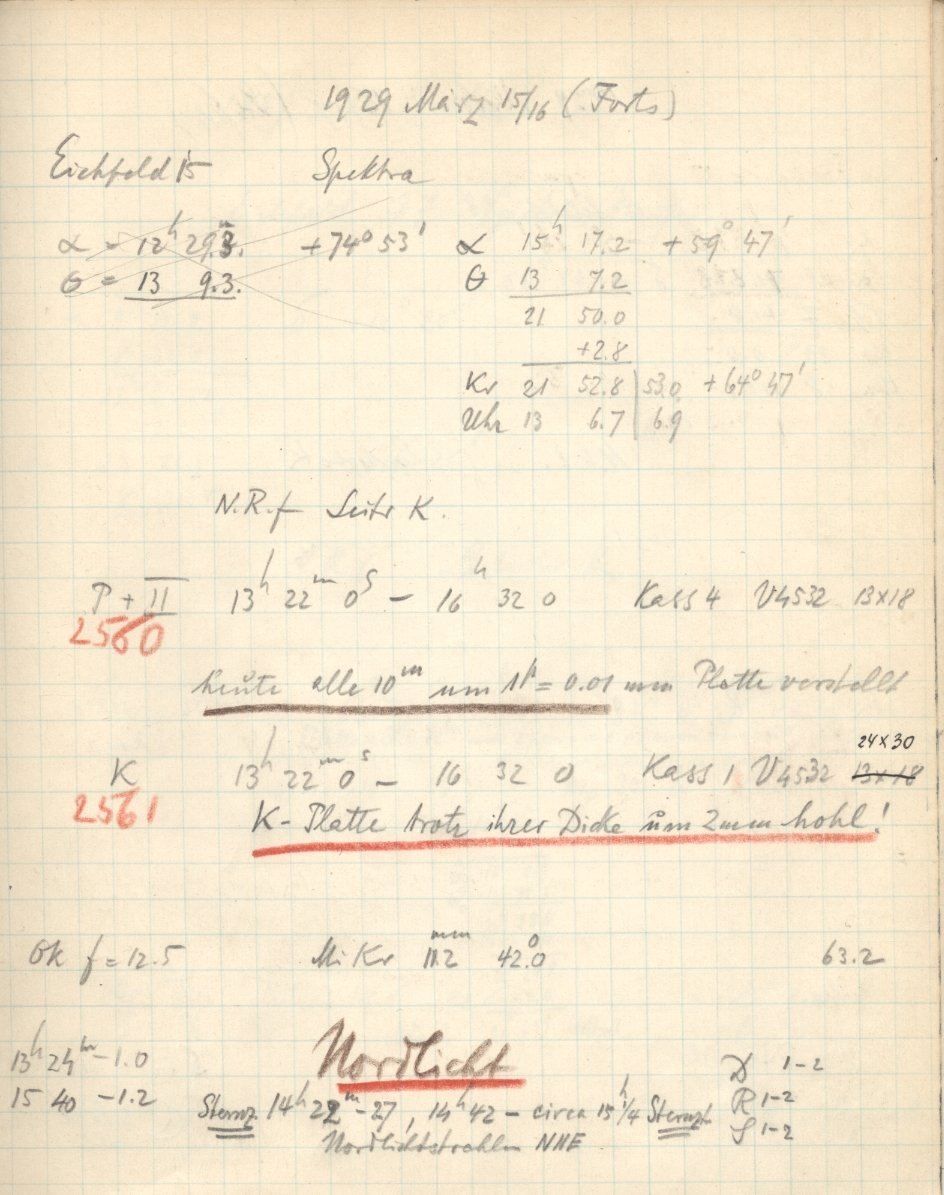 1929 März 15/16 (Forts)
Eichfeld 15 Spektra
α = 12h 29m.3. +74° 53' α 15h 17.2 +59° 47'
θ = 13 9.3. θ 13 7.2
21 50.0
+2.8
Kr 21 52.8 | 53.0 +64° 47'
Uhr 13 6.7 | 6.9
N.R.f Leitr K.
P + II 13h 22m 0s – 16h 32 0 Kass 4 V4532 13x18
2560
heute alle 10m um 1p = 0.01 mm Platte verstellt
24x30
K 13h 22m 0s – 16 32 0 Kass 1 V4532 13x18
2561
K-Platte trotz ihrer Dicke um 2mm hohl!
Ok f = 12.5 Mi Kr 11.2mm 42.0° 63.2
Nordlicht
13h 24m –1.0 D 1-2
15 40 –1.2 Sternz 14h 22m – 27, 14h 42 – circa 15h 1/4 Sternzt R 1-2
Nordlichtstrahlen NNE S 1-2